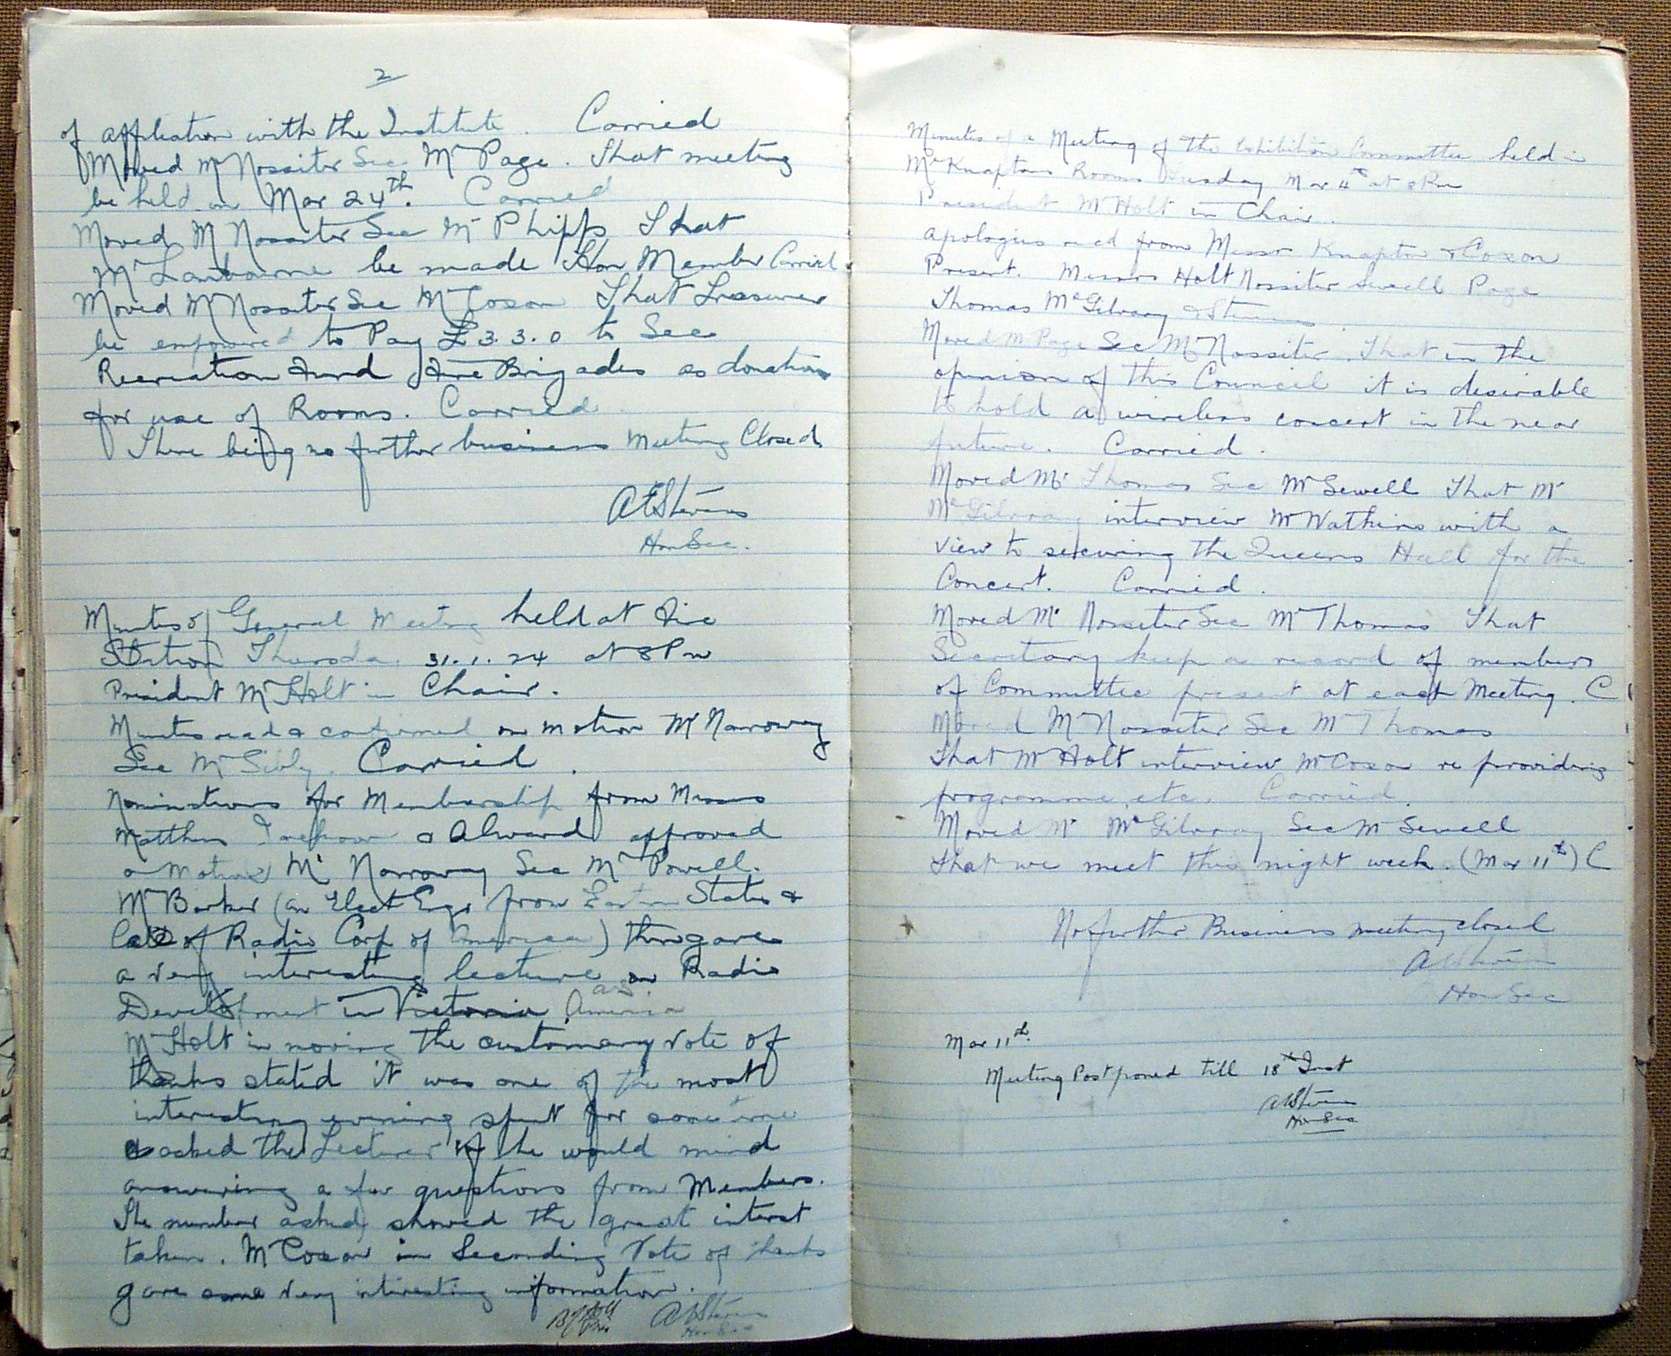 2
of affiliation with the Institute. Carried
Moved Mr Nossiter Sec Mr Page. That meeting
be held on Mar 24th. Carried
Moved Mr Nossiter Sec Mr Phipps That
Mr be made Hon Member Carried.
Moved Mr Nossiter Sec Mr Coxon That Tressurer
be empowered to Pay £3.3.0 to Sec
Recreation Fund Fire Brigades as donation
for use of Rooms. Carried
There being no further business Meeting Closed
A E Stevens
Hon Sec.
Minutes of General Meeting held at Fire
Station Thursda. 31.1.24 at 8 Pm
President Mr Holt in Chair.
Minutes read & confirmed on motion Mr Narroway
Sec Mr Sibly. Carried.
Nominations for Membership from Messrs
Matthews & Alward approved
o motion Mr Narroway Sec Mr Powell.
Mr Barker (an Elect Engr from Eastern States &
late of Radio Corp of America) then gave
a very interesting lecture on Radio
Development in Victoria America
Mr Holt in moving the customary vote of
thanks stated it was one of the most
interesting evening spent for some time
& asked the Lecturer if he would mind
answering a few questions from Members.
The number asked showed the great interest
taken. Mr Coxon in Seconding Vote of thanks
gave some very interesting information.
A E Stevens
Hon Sec
Minutes of a Meeting of the Exhibition Committee held in
Mr Knaptons Rooms Tuesday Mar 4th at 8 Pm
President Mr Holt in Chair.
Apologies recd from Messr Knapton & Coxon
Present. Messrs Holt Nossiter Sewell Page
Thomas McGilvray & Stevens
Moved Mr Page Sec Mr Nossiter. That in the
opinion of this Council it is desirable
to hold a wireless concert in the near
future. Carried.
Moved Mr Thomas Sec Mr Sewell That Mr
McGilvray interview Mr Watkins with a
view to securing the Queens Hall for the
Concert. Carried.
Moved Mr Nossiter Sec Mr Thomas That
Secretary keep a record of members
of Committee present at each Meeting. C
Moved Mr Nossiter Sec Mr Thomas
That Mr Holt interview Mr Coxon re providing
programme, etc. Carried.
Moved Mr McGilvray Sec Mr Sewell
That we meet this night week. (Mar 11th) C
No further Business meeting closed
A E Stevens
Hon Sec
Mar 11th.
Meeting Postponed till 18th Inst
A E Stevens
Hon Sec